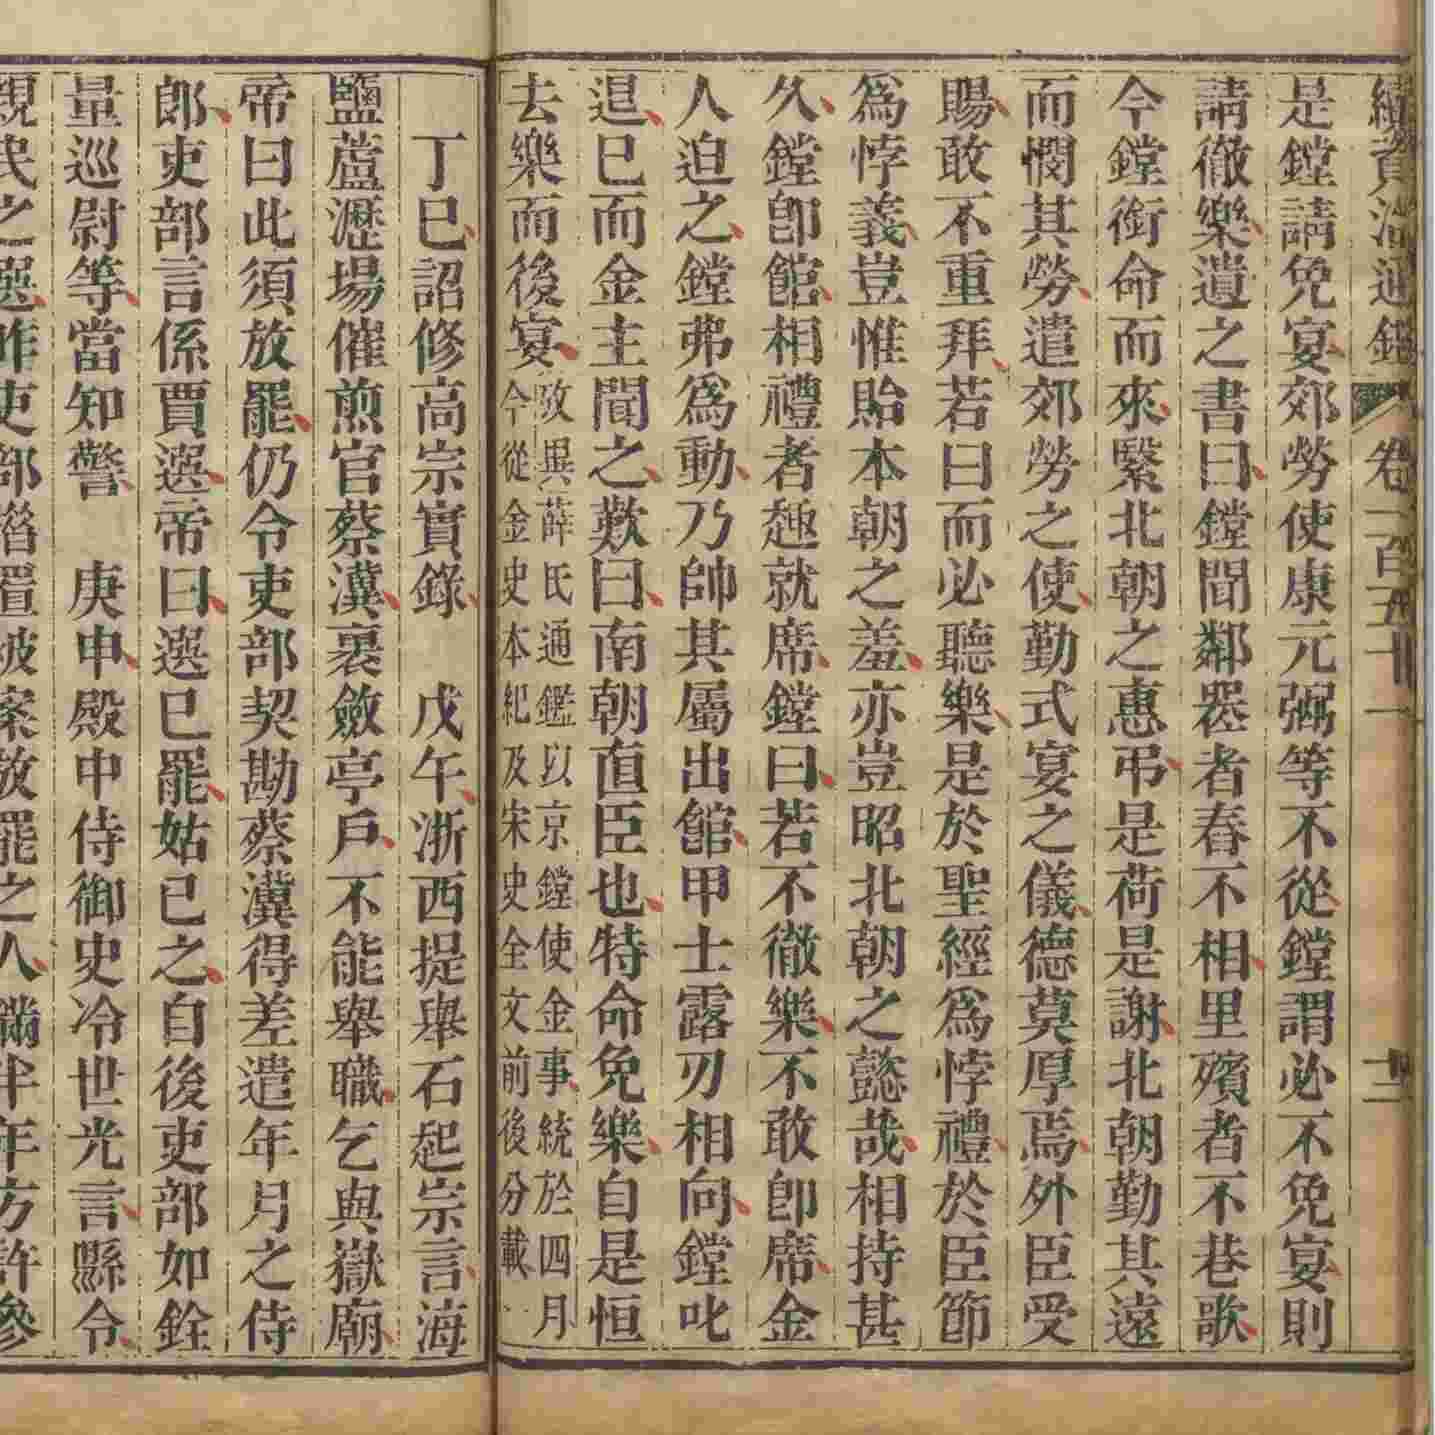 續資治通鑑 卷一百五十一 十二
是鏜請免宴郊勞使康元弼等不從鏜謂必不免宴則
請徹樂遺之書曰鏜聞鄰喪者舂不相里殯者不巷歌
今鏜銜命而來繄北朝之惠弔是荷是謝北朝勤其遠
而憫其勞遣郊勞之使勤式宴之儀德莫厚焉外臣受
賜敢不重拜若曰而必聽樂是於聖經爲悖禮於臣節
爲悖義豈惟貽本朝之羞亦豈昭北朝之懿哉相持甚
久鏜卽館相禮者趣就席鏜曰若不徹樂不敢卽席金
人迫之鏜弗爲動乃帥其屬出館甲士露刃相向鏜叱
退已而金主聞之歎曰南朝直臣也特命免樂自是恒
去樂而後宴攷異薛氏通鑑以京鏜使金事統於四月
今從金史本紀及宋史全文前後分載
丁巳詔修高宗實錄 戊午浙西提舉石起宗言海
鹽蘆瀝場催煎官蔡瀵裒斂亭戶不能舉職乞與嶽廟
帝曰此須放罷仍令吏部契勘蔡瀵得差遣年月之侍
郎吏部言係賈選帝曰選已罷姑已之自後吏部如銓
量巡尉等當知警 庚申殿中侍御史冷世光言縣令
親民之選昨吏部措置被案放罷之人滿半年方許參